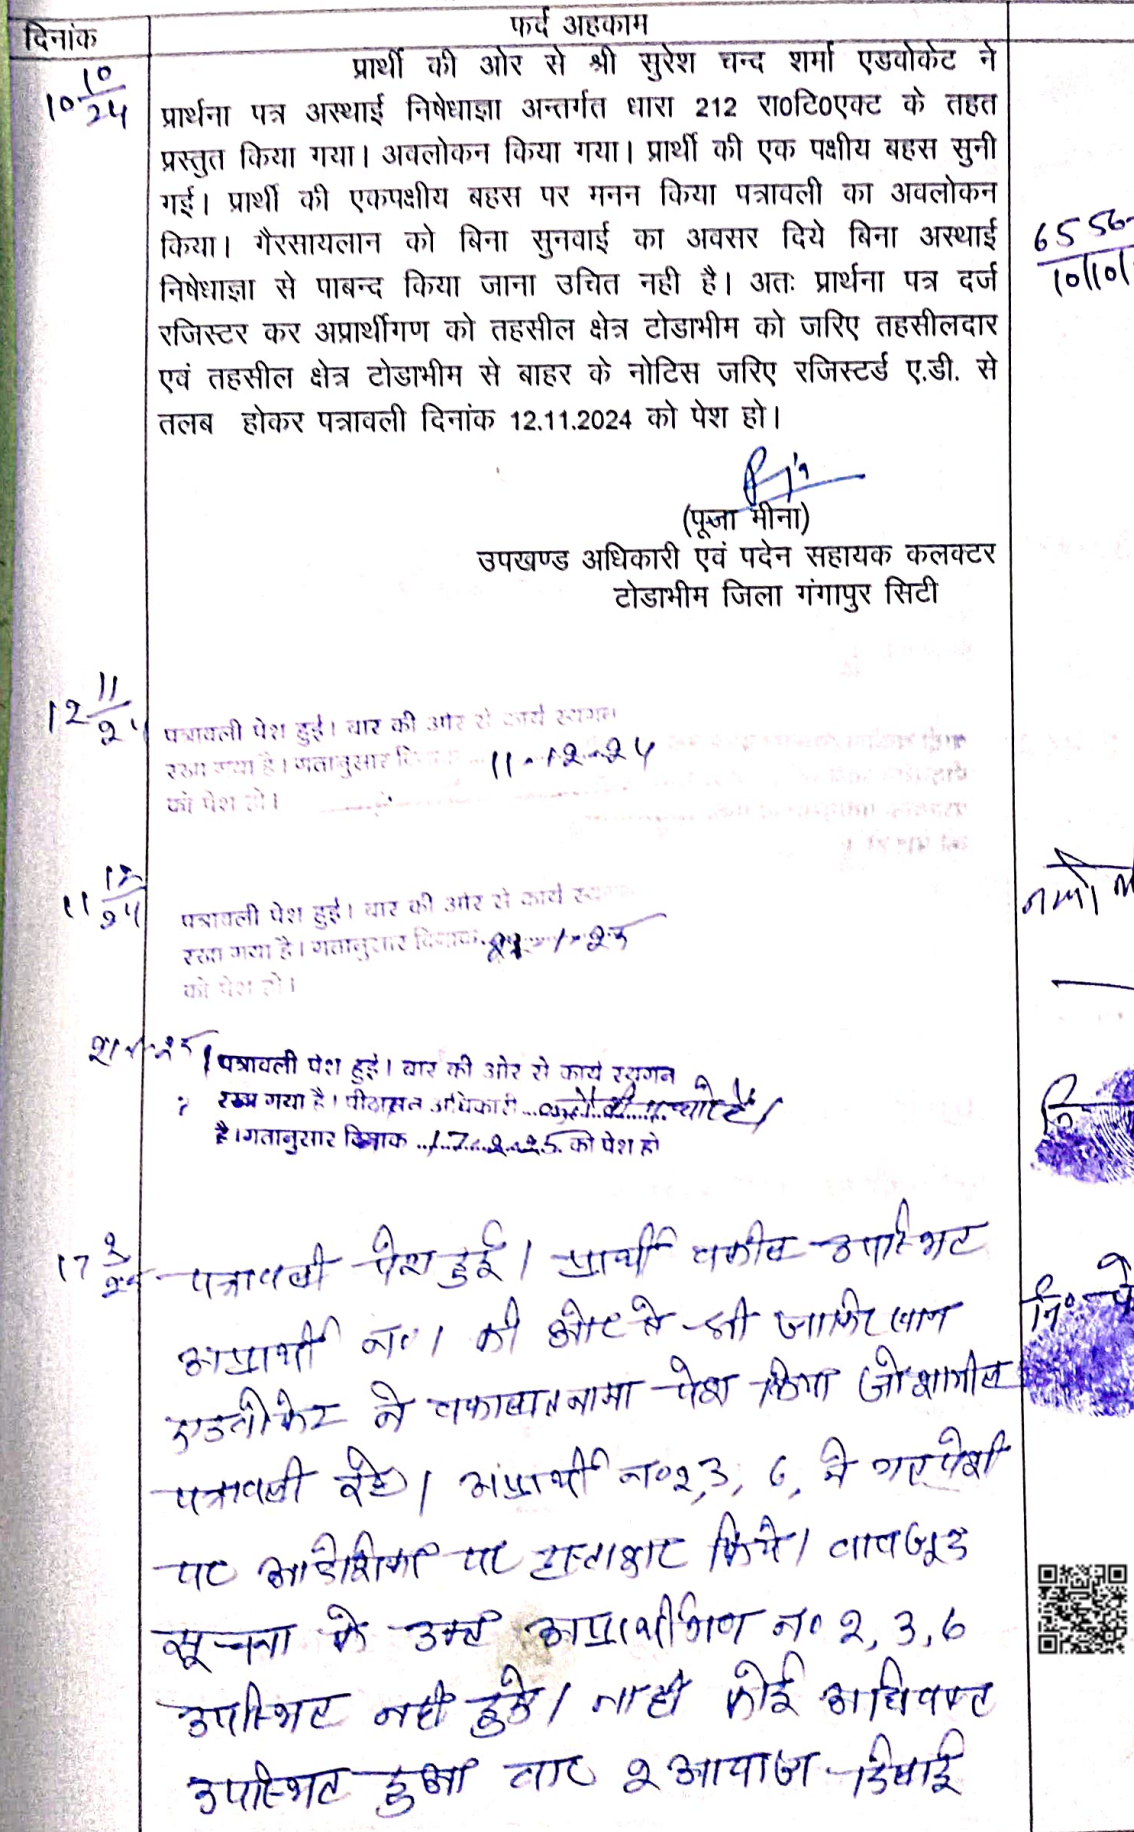 दिनांक
फर्द अहकाम
10 10/24
प्रार्थी की ओर से श्री सुरेश चन्द शर्मा एडवोकेट ने
प्रार्थना पत्र अस्थाई निषेधाज्ञा अन्तर्गत धारा 212 रा०टि०एक्ट के तहत
प्रस्तुत किया गया। अवलोकन किया गया। प्रार्थी की एक पक्षीय बहस सुनी
गई। प्रार्थी की एकपक्षीय बहस पर मनन किया पत्रावली का अवलोकन
किया। गैरसायलान को बिना सुनवाई का अवसर दिये बिना अस्थाई
निषेधाज्ञा से पाबन्द किया जाना उचित नही है। अतः प्रार्थना पत्र दर्ज
रजिस्टर कर अप्रार्थीगण को तहसील क्षेत्र टोडाभीम को जरिए तहसीलदार
एवं तहसील क्षेत्र टोडाभीम से बाहर के नोटिस जरिए रजिस्टर्ड ए.डी. से
तलब होकर पत्रावली दिनांक 12.11.2024 को पेश हो।
6556
10/10/
(पूजा मीना)
उपखण्ड अधिकारी एवं पदेन सहायक कलक्टर
टोडाभीम जिला गंगापुर सिटी
12 11/24
पत्रावली पेश हुई। बार की ओर से कार्य स्थगन
रखा गया है। गतानुसार दिनांक 11-12-24
को पेश हो।
11 12/24
पत्रावली पेश हुई। बार की ओर से कार्य स्थगन
रखा गया है। गतानुसार दिनांक 21-1-25
को पेश हो।
21-1-25
पत्रावली पेश हुई। बार की ओर से कार्य स्थगन
रखा गया है। पीठासन अधिकारी
है। गतानुसार दिनांक 17.2.25 को पेश हो
17 2/25
पत्रावली पेश हुई। प्रार्थी वकील उपस्थित
अप्रार्थी न० 1 की ओर से श्री जाकिर खान
एडवोकेट ने वकालतनामा पेश किया जो शामील
पत्रावली रहे। अप्रार्थी न० 2, 3, 6, ने गत पेशी
पर आदेशिका पर हस्ताक्षर किये। बावजूद
सूचना के उक्त अप्रार्थीगण न० 2, 3, 6
उपस्थित नही हुये। नाही कोई अधिवक्ता
उपस्थित हुआ बार 2 आवाज दिलाई